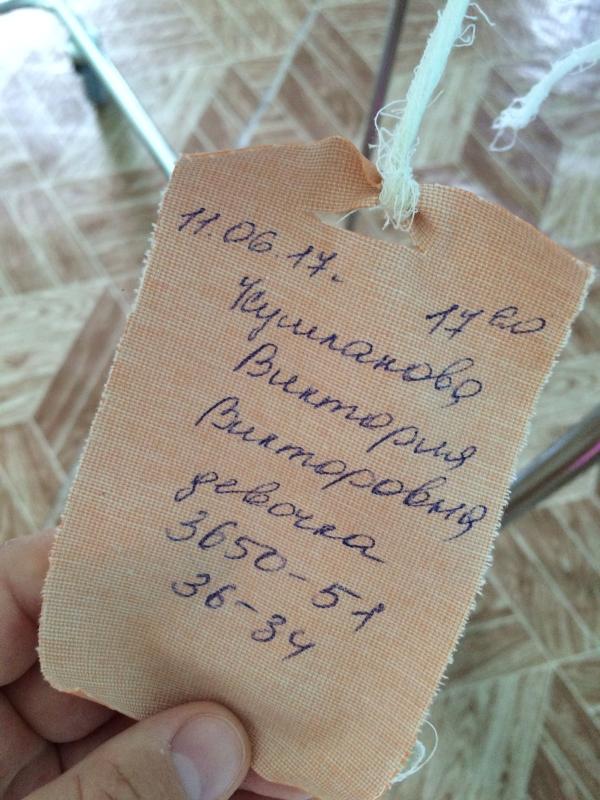 11.06.17.
17 00
Кушпанова
Виктория
Викторовна
девочка
3650-51
36-34